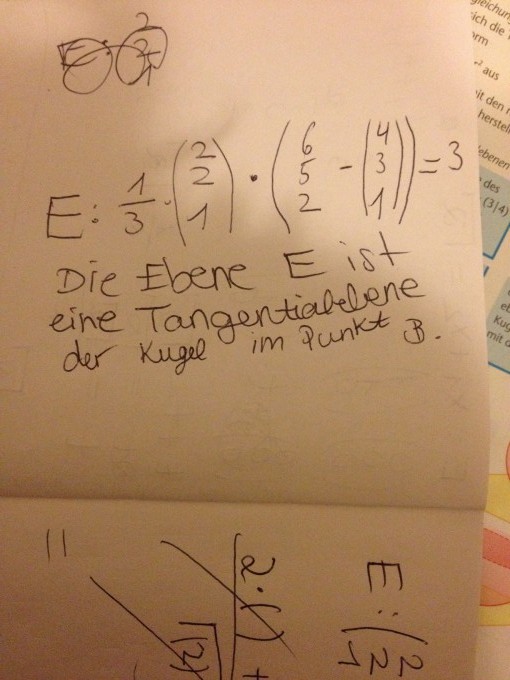 E: 1/3 · (2 2 1) · (6 5 2 - (4 3 1)) = 3
Die Ebene E ist
eine Tangentialebene
der Kugel im Punkt B.
gleichung
ich die
orm
aus
it den
herstell
ebenen
des
(3|4)
eb
Kug
mit d
E: (2 2 1
2·( )
||